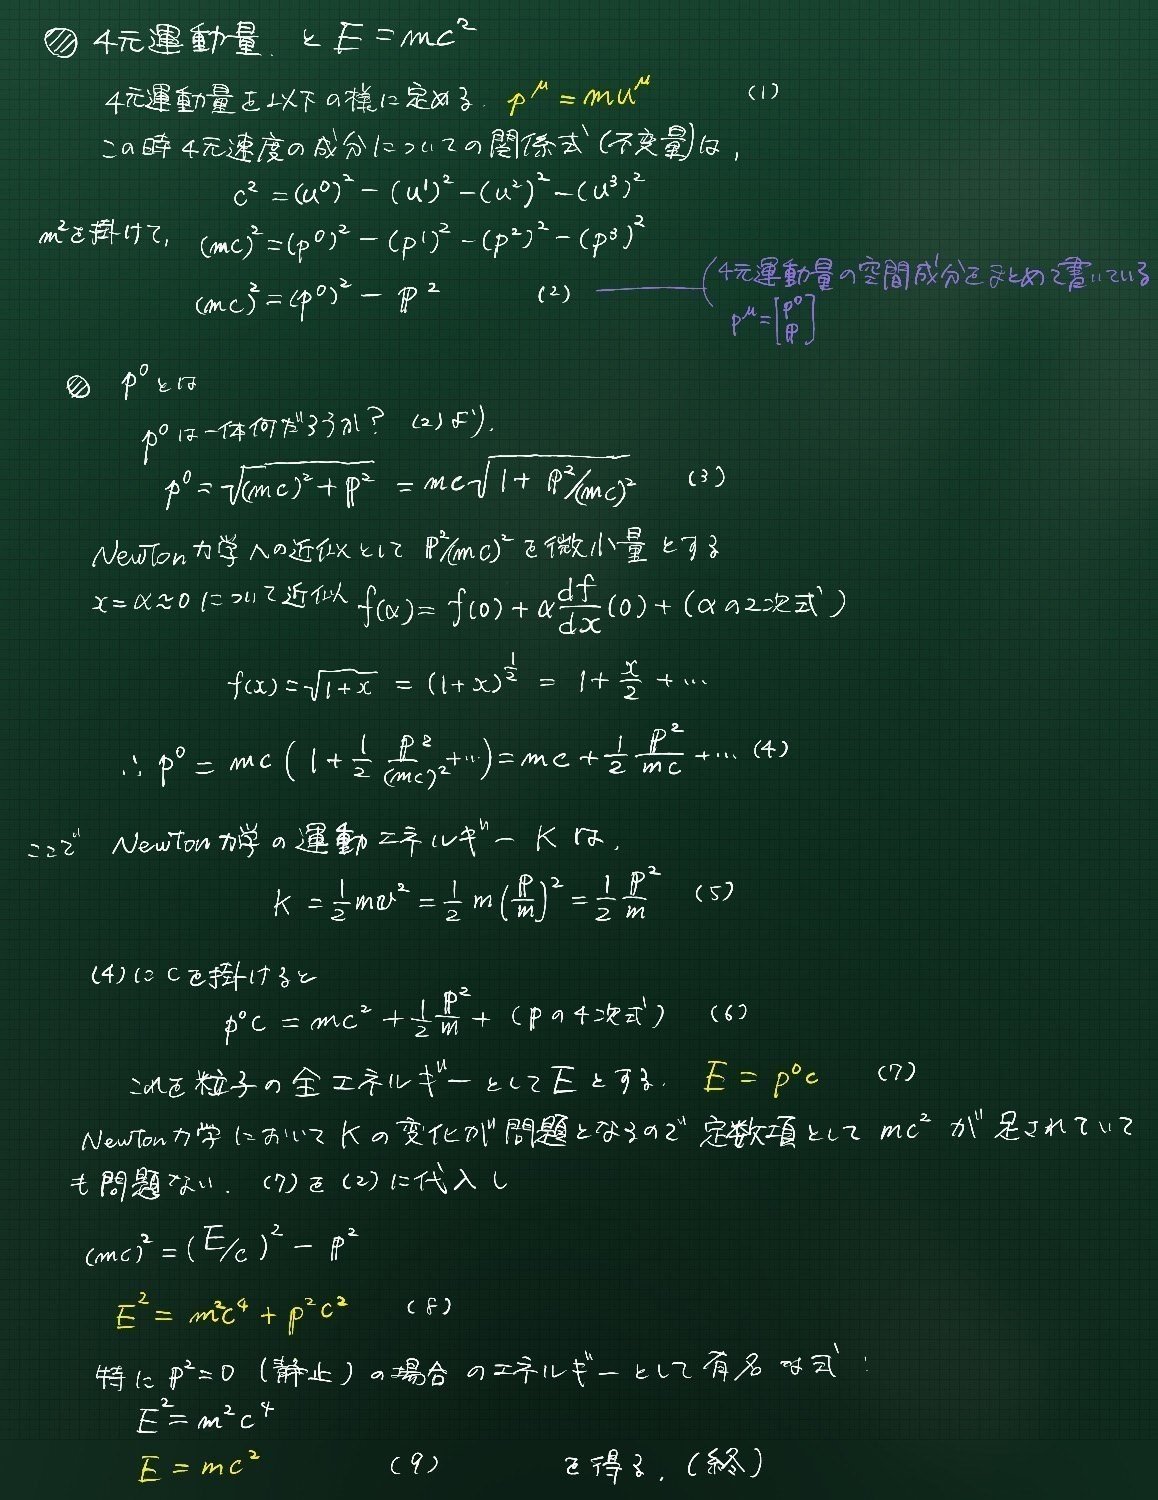 4元運動量 と E=mc²
4元運動量を以下の様に定める. p^μ = mu^μ (1)
この時4元速度の成分についての関係式(不変量)は,
c² = (u⁰)² - (u¹)² - (u²)² - (u³)²
m²を掛けて, (mc)² = (p⁰)² - (p¹)² - (p²)² - (p³)²
(mc)² = (p⁰)² - ℙ² (2)
(4元運動量の空間成分をまとめて書いている
p^μ = [p⁰ ℙ]
p⁰とは
p⁰は一体何だろうか? (2)より.
p⁰ = √((mc)² + ℙ²) = mc√(1 + ℙ²/(mc)²) (3)
Newton力学への近似として ℙ²/(mc)² を微小量とする
x=α≈0 について近似 f(α) = f(0) + α df/dx (0) + (αの2次式)
f(x) = √(1+x) = (1+x)^(1/2) = 1 + x/2 + …
∴ p⁰ = mc (1 + 1/2 ℙ²/(mc)² + …) = mc + 1/2 ℙ²/mc + … (4)
ここで Newton力学の運動エネルギー K は,
K = 1/2 mv² = 1/2 m(ℙ/m)² = 1/2 ℙ²/m (5)
(4)にcを掛けると
p⁰c = mc² + 1/2 ℙ²/m + (ℙの4次式) (6)
これを粒子の全エネルギーとしてEとする. E = p⁰c (7)
Newton力学においてKの変化が問題となるので定数項としてmc²が足されていて
も問題ない. (7)を(2)に代入し
(mc)² = (E/c)² - ℙ²
E² = m²c⁴ + p²c² (8)
特に ℙ²=0 (静止)の場合のエネルギーとして有名な式:
E² = m²c⁴
E = mc² (9) を得る. (終)